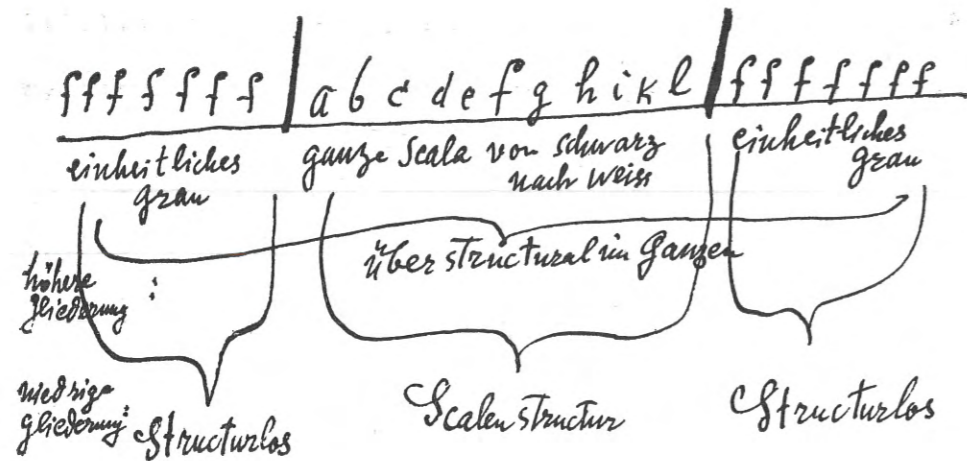 f f f f f f f | a b c d e f g h i k l | f f f f f f f
einheitliches
grau
ganze Scala von schwarz
nach weiss
einheitliches
grau
überstructural im Ganzen
höhere
gliederung :
niedrige
gliederung:
Structurlos
Scalenstructur
Structurlos